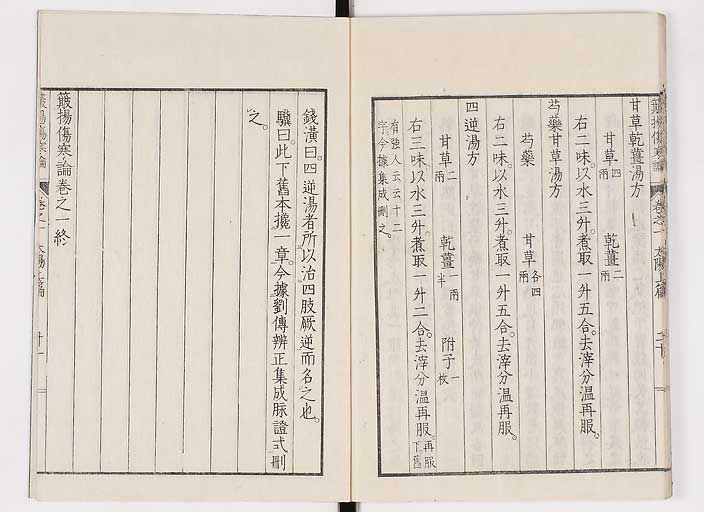 甘草乾薑湯方
甘草四兩 乾薑二兩
右二味。以水三升。煮取一升五合。去滓分溫再服。
芍藥甘草湯方
芍藥 甘草各四兩
右二味。以水三升。煮取一升五合。去滓分溫再服。
四逆湯方
甘草二兩 乾薑一兩半 附子一枚
右三味。以水三升。煮取一升二合。去滓分溫再服。再服下。舊
有強人云云十二
字。今據集成刪之。
錢潢曰。四逆湯者所以治四肢厥逆而名之也。
驥曰。此下舊本攙一章。今據劉傳辨正集成脉證式刪
之。
簸揚傷寒論卷之一終